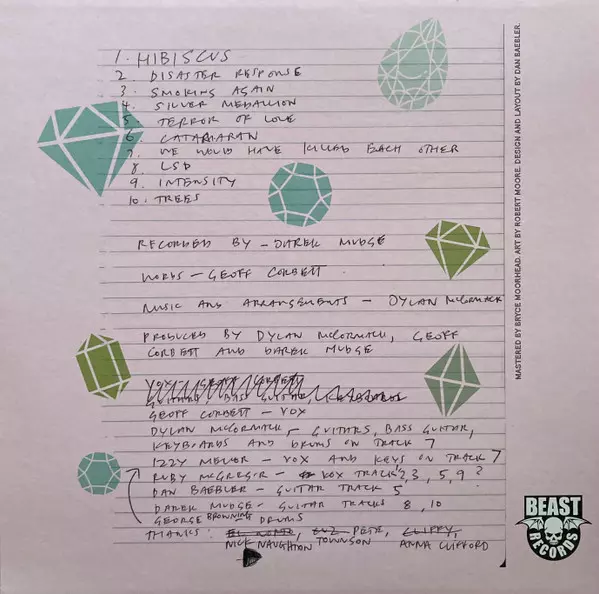 1. HIBISCUS
2. DISASTER RESPONSE
3. SMOKING AGAIN
4. SILVER MEDALLION
5. TERROR OF LOVE
6. CATAMARAN
7. WE WOULD HAVE KILLED EACH OTHER
8. LSD
9. INTENSITY
10. TREES
RECORDED BY - DAREK MUDGE
WORDS - GEOFF CORBETT
MUSIC AND ARRANGEMENTS - DYLAN McCORMACK
PRODUCED BY DYLAN McCORMACK, GEOFF
CORBETT AND DAREK MUDGE
VOX GEOFF CORBETT
GUITARS, BASS GUITAR, KEYBOARDS
GEOFF CORBETT - VOX
DYLAN McCORMACK - GUITARS, BASS GUITAR,
KEYBOARDS AND DRUMS ON TRACK 7
IZZY MELLER - VOX AND KEYS ON TRACK 7
RUBY McGREGOR - VOX TRACK 2, 3, 5, 9 ?
DAN BAEBLER - GUITAR TRACK 5
DAREK MUDGE - GUITAR TRACKS 8, 10
GEORGE BROWNING DRUMS
THANKS: PETE, CLIFFY,
NICK NAUGHTON TOWNSON ANNA CLIFFORD
MASTERED BY BRYCE MOORHEAD. ART BY ROBERT MOORE. DESIGN AND LAYOUT BY DAN BAEBLER.
BEAST
RECORDS